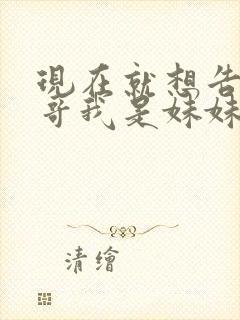 現在就想告
哥我是妹妹
清繪